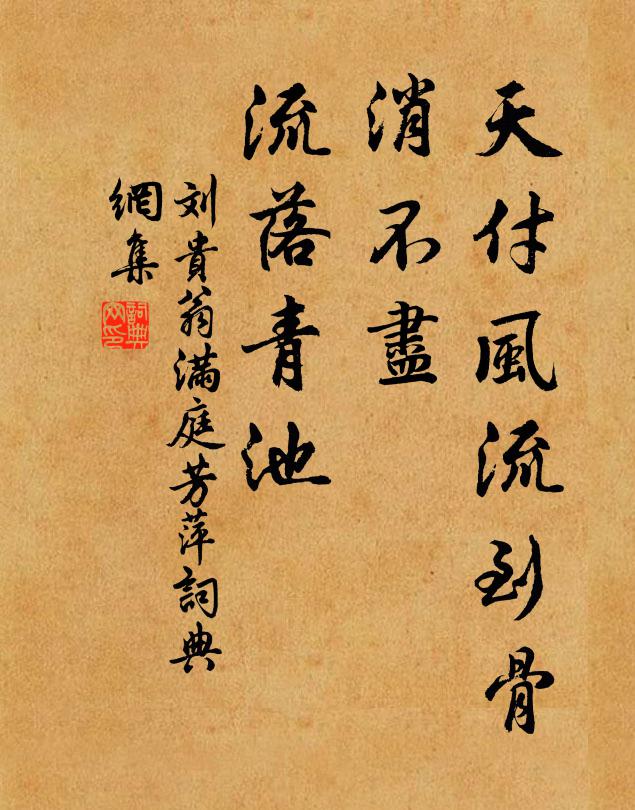 天付風流到骨
消不盡
流落青池
刘貴翁满庭芳萍詞典
網集
詞典網印